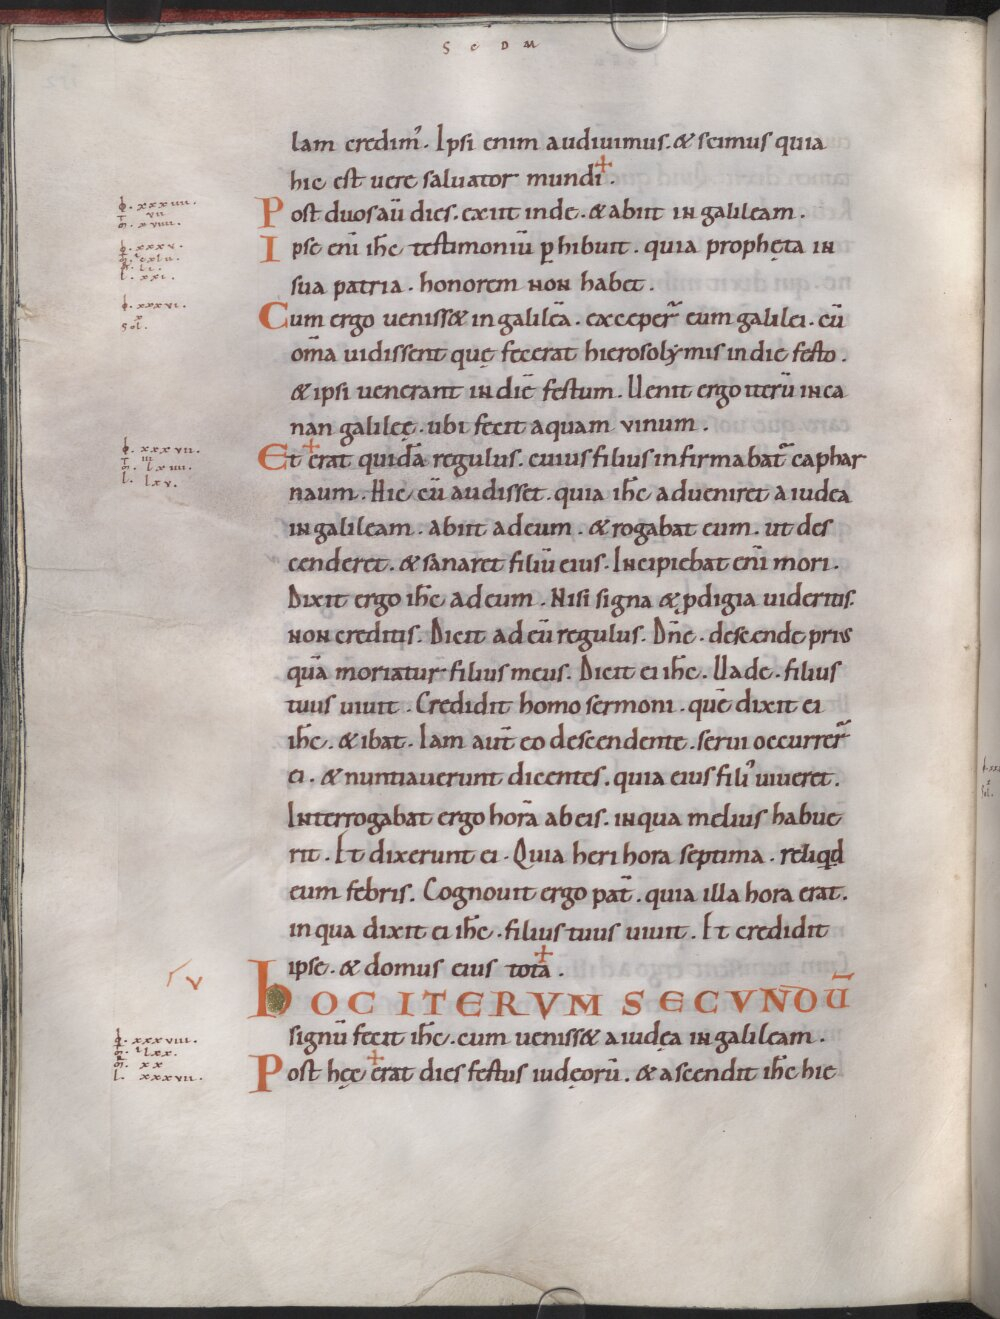 SCDM
lam credim᾿. Ipsi enim audiuimus. & scimus quia
hic est uere saluator mundi.
Post duos aū dies. exiit inde. & abiit in galileam.
Ipse eni̅ ihc̅ testimoniū ꝑhibuit. quia propheta in
sua patria. honorem non habet.
Cum ergo uenisset in galileā. exceper̅ eum galilei. cū
om̅a uidissent quę fecerat hierosolymis in die festo.
& ipsi uenerant in diē festum. Uenit ergo iterū in ca
nan galileę. ubi fecit aquam vinum.
Et erat quidā regulus. cuius filius infirmabat̅ caphar
naum. Hic cū audisset. quia ihc̅ adueniret a iudea
in galileam. abiit ad eum. & rogabat eum. ut des
cenderet. & sanaret filiū eius. Incipiebat eni̅ mori.
Dixit ergo ihc̅ ad eum. Nisi signa & ꝓdigia uideritis.
non creditis. Dicit ad eū regulus. Dn̅e. descende prius
quā moriatur filius meus. Dicit ei ihc̅. Uade. filius
tuus uiuit. Credidit homo sermoni. quē dixit ei
ihc̅. & ibat. Iam aut̅ eo descendente. serui occurrer̅
ei. & nuntiauerunt dicentes. quia eius fili᾿ uiueret.
Interrogabat ergo horā ab eis. in qua melius habue
rit. Et dixerunt ei. Quia heri hora septima. reliqđ
eum febris. Cognouit ergo pat̅. quia illa hora erat.
in qua dixit ei ihc̅. filius tuus uiuit. Et credidit
ipse. & domus eius tota.
V
HOC ITERVM SECVNDŪ
signū fecit ihc̅. cum uenisset a iudęa in galileam.
Post hęc erat dies festus iudęorū. & ascendit ihc̅ hie
ϕ. xxxiiii.
T vii
m. xviiii.
ϕ. xxxv.
m. cxlii.
R. li.
l. xxi.
ϕ. xxxvi.
Sol.
ϕ. xxxvii.
T iii
m. lxiiii.
l. lxv.
ϕ. xxxviii.
m. lxx.
m. xx
l. xxxvii.